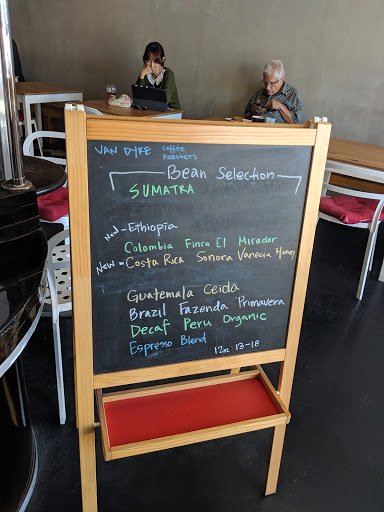 VAN DYKE Coffee Roasters
Bean Selection
SUMATRA
New - Ethiopia
Colombia Finca El Mirador
New - Costa Rica Sonora Vanecia Honey
Guatemala Ceida
Brazil Fazenda Primavera
Decaf Peru Organic
Espresso Blend
12oz 13-18